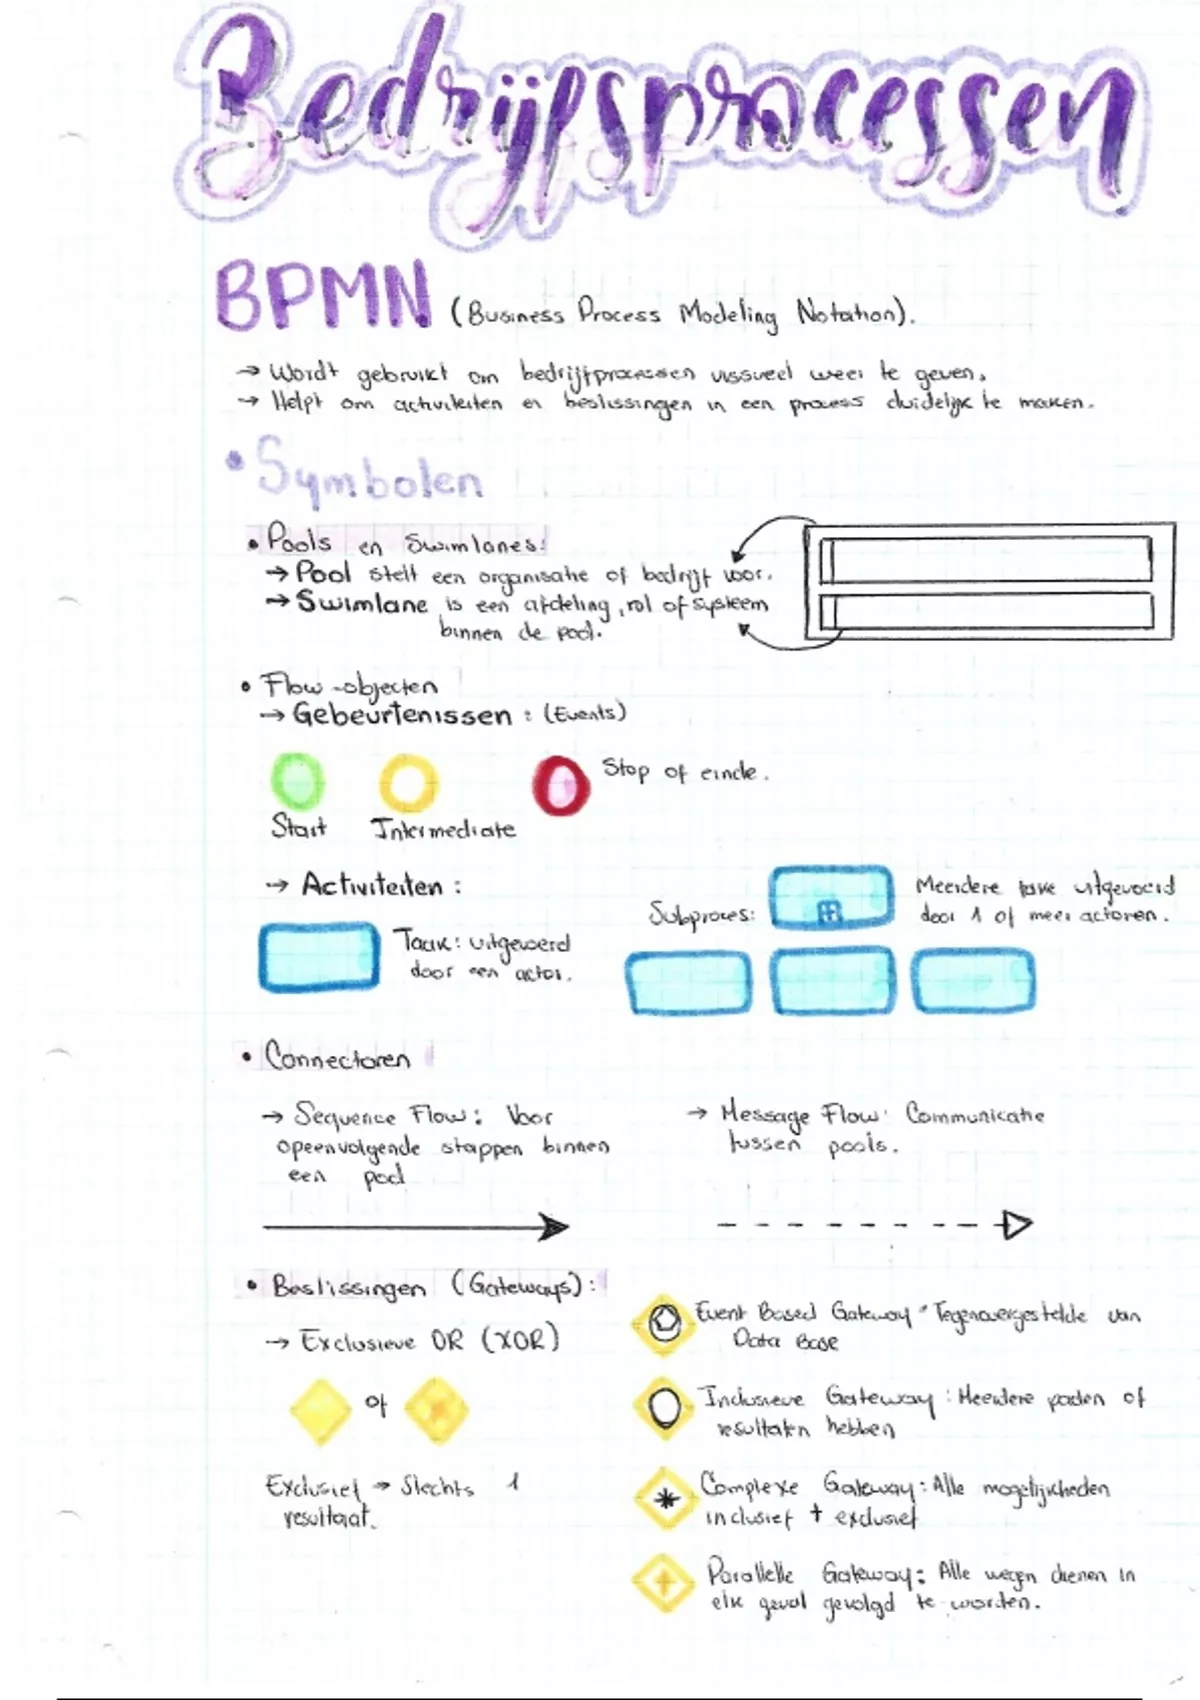 Bedrijfsprocessen
BPMN (Business Process Modeling Notation).
→ Wordt gebruikt om bedrijfprocessen vissueel weer te geven.
→ Helpt om activiteiten en beslissingen in een process duidelijk te maken.
• Symbolen
• Pools en Swimlanes:
→ Pool stelt een organisatie of bedrijf voor.
→ Swimlane is een afdeling, rol of systeem
binnen de pool.
• Flow-objecten
→ Gebeurtenissen : (Events)
Stop of einde.
Start Intermediate
→ Activiteiten :
Taak: uitgevoerd
door een actor.
Subproces:
Meerdere take uitgevoerd
door 1 of meer actoren.
• Connectoren
→ Sequence Flow: Voor
opeenvolgende stappen binnen
een pool
→ Message Flow: Communicatie
tussen pools.
• Beslissingen (Gateways):
→ Exclusieve OR (XOR)
of
Exclusief → Slechts 1
resultaat.
Event Based Gateway: Tegenovergestelde van
Data Base
Inclusieve Gateway: Meerdere paden of
resultaten hebben
Complexe Gateway: Alle mogelijkheden
inclusief + exclusief
Parallelle Gateway: Alle wegen dienen in
elk geval gevolgd te worden.